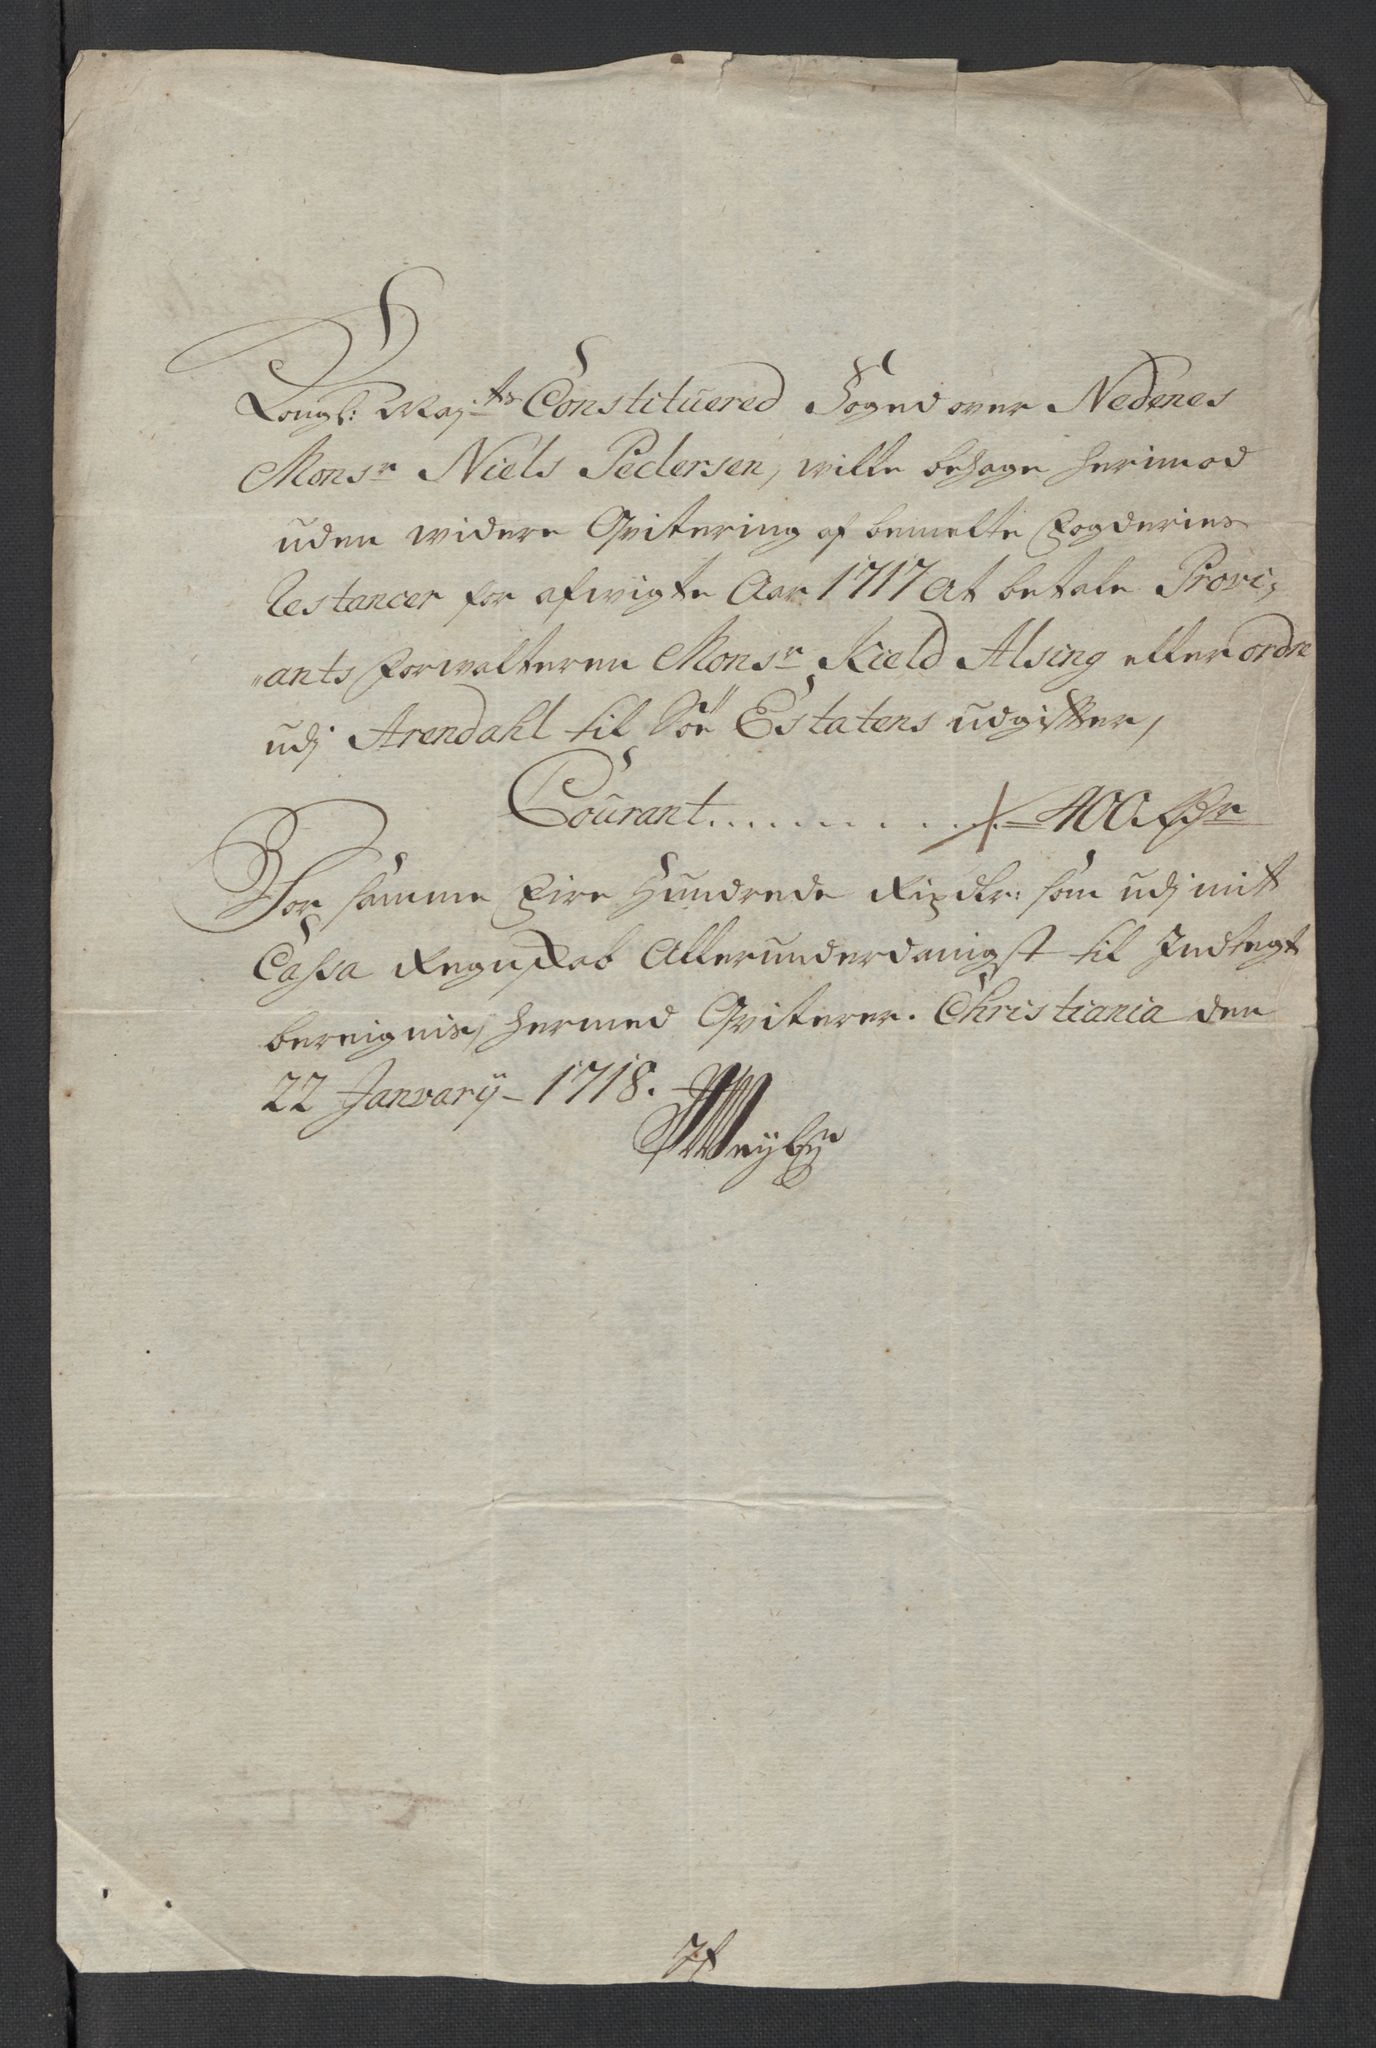 Kongl: Maj:ts Constituered Foged over Nedenes
Monsr Niels Pedersen, wille behage herimod
uden widere Qvitering af bemelte Fogderies
Restancer for afwigte Aar 1717 at betale Provi,
"ants forwalteren Monsr Kield Alsing eller ordre
udj Arendahl til Söe Estatens udgifter,
Courant . . . . . . . . . 400 Rdr
For samme Fire Hundrede Rixdlr: som udj mitt
Cassa Regnskab Allerunderdanigst til Indtegt
bereignis, hermed Qviterer. Christiania den
22 January - 1718.